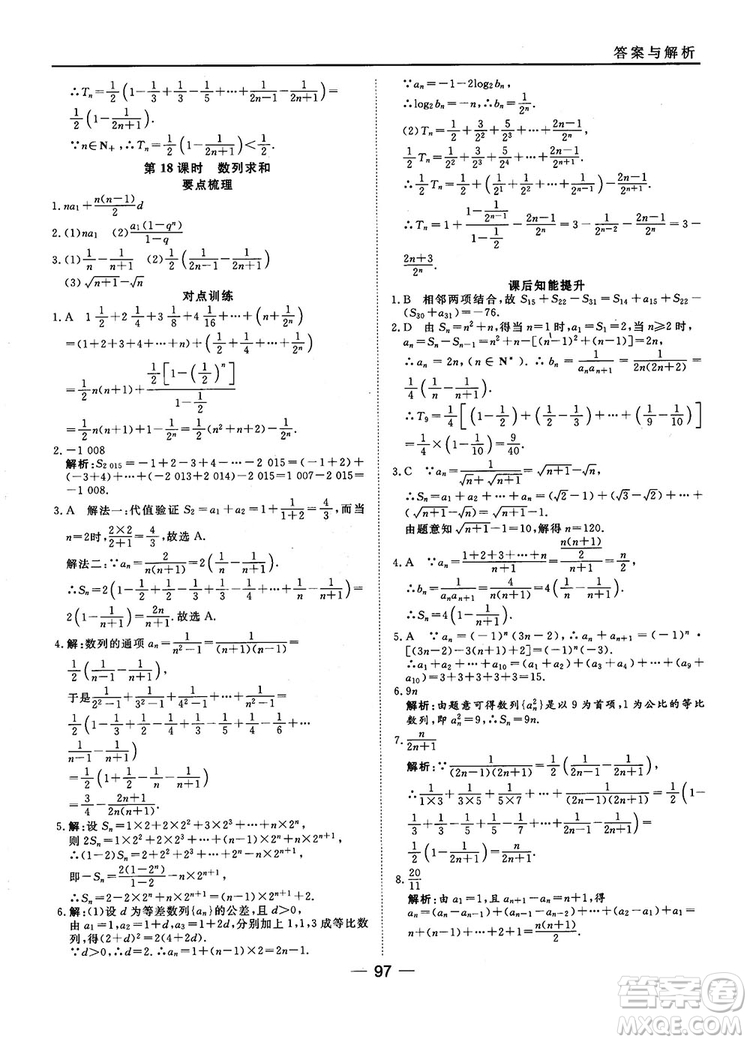 答案与解析
∴Tₙ=1/2(1-1/3+1/3-1/5+…+1/(2n-1)-1/(2n+1))=
1/2(1-1/(2n+1)).
∵n∈N₊,∴Tₙ=1/2(1-1/(2n+1))<1/2.
第18课时 数列求和
要点梳理
1.na₁+n(n-1)/2 d
2.(1)na₁ (2)a₁(1-qⁿ)/(1-q)
3.(1)1/n-1/(n+1) (2)1/2(1/(2n-1)-1/(2n+1))
(3)√(n+1)-√n
对点训练
1.A 1 1/2+2 1/4+3 1/8+4 1/16+…+(n+1/2ⁿ)
=(1+2+…+n)+(1/2+1/4+…+1/2ⁿ)
=1/2 n(n+1)+1/2[1-(1/2)ⁿ]/(1-1/2)
=1/2 n(n+1)+1-1/2ⁿ=1/2(n²+n+2)-1/2ⁿ.
2.-1 008
解析:S₂ ₀₁₅=-1+2-3+4-…-2 015=(-1+2)+
(-3+4)+…+(-2 013+2 014)-2 015=1 007-2 015=
-1 008.
3.A 解法一:代值验证 S₂ ₀₁₅=1+1/(1+2)=4/3,而当
n=2时,(2×2)/(2+1)=4/3,故选A.
解法二:∵aₙ=2/(n(n+1))=2(1/n-1/(n+1)),
∴Sₙ=2(1-1/2+1/2-1/3+1/3-1/4+…+1/n-1/(n+1))=
2(1-1/(n+1))=2n/(n+1).故选A.
4.解:数列的通项aₙ=1/(n²-1)=1/((n+1)(n-1))=
1/2(1/(n-1)-1/(n+1)),
于是1/2(1-1/3+1/2-1/4+1/3-1/5+…+
1/(n-1)-1/(n+1))=1/2(1+1/2-1/n-1/(n+1))=
3/4-(2n+1)/(2n(n+1)).
5.解:设Sₙ=1×2+2×2²+3×2³+…+n×2ⁿ,
则2Sₙ=1×2²+2×2³+3×2⁴+…+n×2ⁿ⁺¹,
∴(1-2)Sₙ=1×2+1×2²+1×2³+…+1×2ⁿ-n×2ⁿ⁺¹,
即-Sₙ=2(1-2ⁿ)/(1-2)-n×2ⁿ⁺¹,
∴Sₙ=2-2×2ⁿ+n×2ⁿ⁺¹=2+(n-1)×2ⁿ⁺¹.
6.解:(1)设d为等差数列{aₙ}的公差,且d>0,
由a₁=1,a₂=1+d,a₃=1+2d,分别加上1,1,3成等比数
列,得(2+d)²=2(4+2d).
∵d>0,∴d=2.∴aₙ=1+(n-1)×2=2n-1.
∵aₙ=-1-2log₂bₙ,
∴log₂bₙ=-n,∴bₙ=1/2ⁿ.
(2)Tₙ=1/2+3/2²+5/2³+…+(2n-1)/2ⁿ,
1/2Tₙ=1/2²+3/2³+5/2⁴+…+(2n-1)/2ⁿ⁺¹.
∴1/2Tₙ=1/2+2(1/2²+1/2³+…+1/2ⁿ)-(2n-1)/2ⁿ⁺¹.
∴Tₙ=1+(1-1/2ⁿ⁻¹)/(1-1/2)-(2n-1)/2ⁿ=3-1/2ⁿ⁻²-(2n-1)/2ⁿ=3-
(2n+3)/2ⁿ.
课后知能提升
1.B 相邻两项结合,故S₁₅+S₂₂-S₃₁=S₁₄+a₁₅+S₂₂-
(S₃₀+a₃₁)=-76.
2.D 由Sₙ=n²+n,得当n=1时,a₁=S₁=2,当n≥2时,
aₙ=Sₙ-Sₙ₋₁=n²+n-[(n-1)²+(n-1)]=2n,
∴aₙ=2n,(n∈N*).∴1/(aₙaₙ₊₁)=1/(2n(2n+2))=
1/4(1/n-1/(n+1)),
∴T₉=1/4[(1-1/2)+(1/2-1/3)+…+(1/9-1/10)]
=1/4×(1-1/10)=9/40.
3.C ∵aₙ=1/(√(n+1)+√n)=√(n+1)-√n,
∴Sₙ=a₁+a₂+…+aₙ=(√2-1)+(√3-√2)+…+
(√(n+1)-√n)=√(n+1)-1.
由题意知√(n+1)-1=10,解得n=120.
4.A ∵aₙ=(1+2+3+…+n)/(n+1)=(n(n+1)/2)/(n+1)=n/2,
∴bₙ=1/(aₙaₙ₊₁)=4/(n(n+1))=4(1/n-1/(n+1)).
∴Sₙ=4(1-1/(n+1)).
5.A ∵aₙ=(-1)ⁿ(3n-2),∴aₙ+aₙ₊₁=(-1)ⁿ·
[(3n-2)-3(n+1)+2]=(-1)ⁿ⁺¹3,
∴a₁+a₂+…+a₁₀=(a₁+a₂)+(a₃+a₄)+…+(a₉+
a₁₀)=3+3+3+3+3=15.
6.9n
解析:由题意可得数列{aₙ²}是以9为首项,1为公比的等比
数列,即aₙ²=9,∴Sₙ=9n.
7.n/(2n+1)
解析:∵1/((2n-1)(2n+1))=1/2(1/(2n-1)-1/(2n+1)),
∴1/(1×3)+1/(3×5)+1/(5×7)+…+1/((2n-1)(2n+1))=1/2(1-
1/3+1/3-1/5+…+1/(2n-1)-1/(2n+1))=1/2(1-1/(2n+1))=
n/(2n+1).
8.20/11
解析:由a₁=1,且aₙ₊₁-aₙ=n+1得,
aₙ=a₁+(a₂-a₁)+(a₃-a₂)+…+(aₙ-aₙ₋₁)=1+2
+3+…+n=n(n+1)/2.
97
答案圈
MXQE.COM